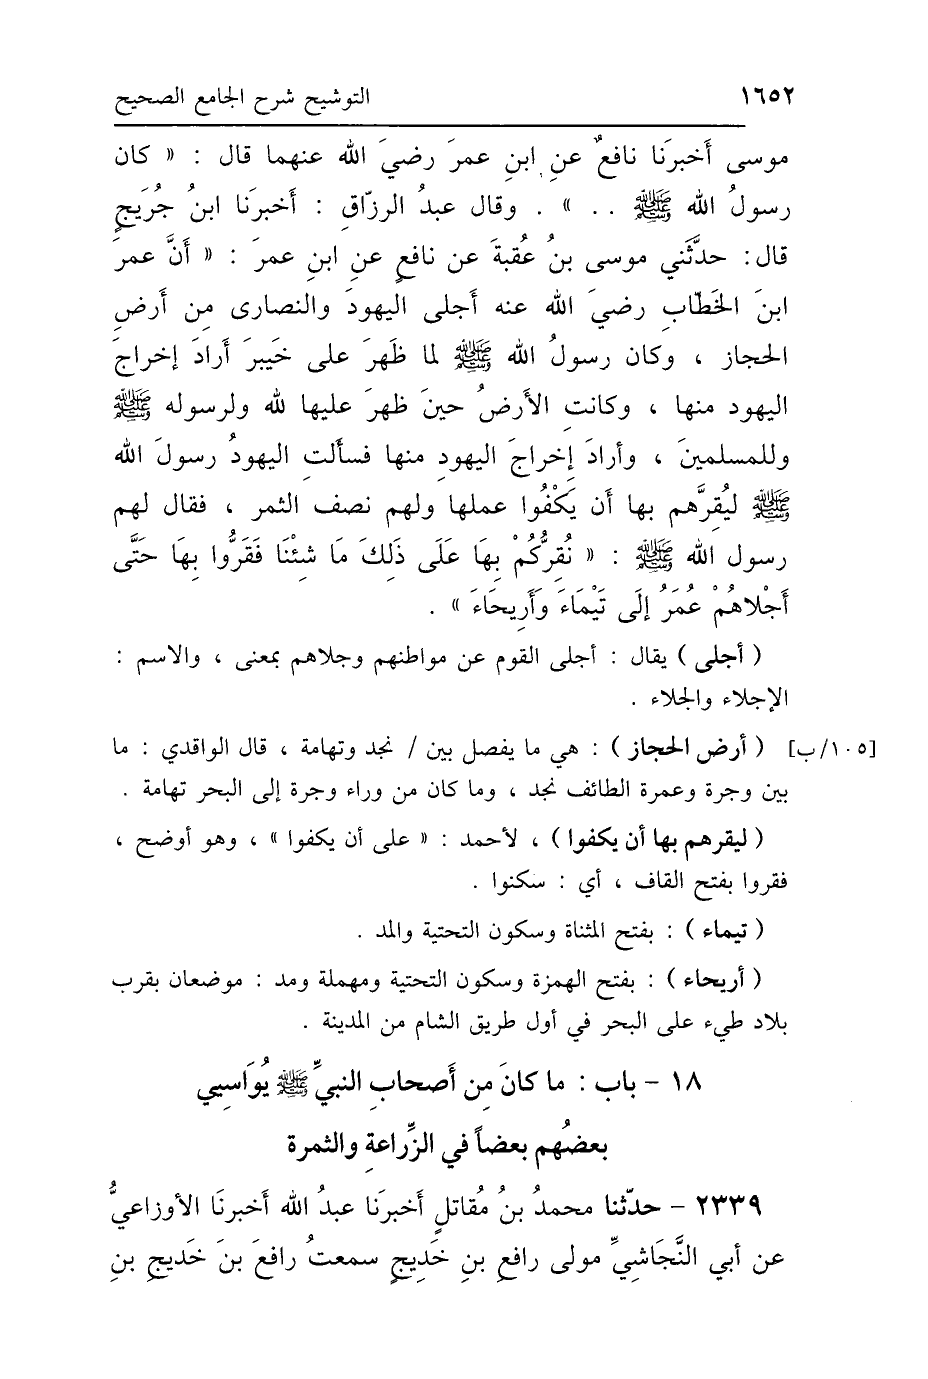 ١٦٥٢ التوشيح شرح الجامع الصحيح
موسى أَخبرَنا نافعٌ عنِ ابنِ عمرَ رضيَ الله عنهما قال : « كان
رسولُ الله ﷺ .. » . وقال عبدُ الرزّاقِ : أَخبرَنا ابنُ جُرَيجٍ
قال: حدَّثَني موسى بنُ عُقبةَ عن نافعٍ عنِ ابنِ عمرَ : « أَنَّ عمرَ
ابنَ الخَطّابِ رضيَ الله عنه أَجلى اليهودَ والنصارى مِن أَرضِ
الحجاز ، وكان رسولُ الله ﷺ لما ظَهرَ على خَيبرَ أَرادَ إخراجَ
اليهود منها ، وكانتِ الأَرضُ حينَ ظهرَ عليها لله ولرسوله ﷺ
وللمسلمينَ ، وأرادَ إِخراجَ اليهودِ منها فسأَلتِ اليهودُ رسولَ الله
ﷺ ليُقِرَّهم بها أَن يَكْفُوا عملها ولهم نصف الثمر ، فقال لهم
رسول الله ﷺ : « نُقِرُّكُمْ بِهَا عَلَى ذَلِكَ مَا شِئْنَا فَقَرُّوا بِهَا حَتَّى
أَجْلاهُمْ عُمَرُ إِلَى تَيْمَاءَ وَأَرِيحَاءَ » .
( أجلى ) يقال : أجلى القوم عن مواطنهم وجلاهم بمعنى ، والاسم :
الإجلاء والجلاء .
[١٠٥/ب] ( أرض الحجاز ) : هي ما يفصل بين / نجد وتهامة ، قال الواقدي : ما
بين وجرة وعمرة الطائف نجد ، وما كان من وراء وجرة إلى البحر تهامة .
( ليقرهم بها أن يكفوا ) ، لأحمد : « على أن يكفوا » ، وهو أوضح ،
فقروا بفتح القاف ، أي : سكنوا .
( تيماء ) : بفتح المثناة وسكون التحتية والمد .
( أريحاء ) : بفتح الهمزة وسكون التحتية ومهملة ومد : موضعان بقرب
بلاد طيء على البحر في أول طريق الشام من المدينة .
١٨ - باب : ما كانَ مِن أَصحابِ النبيِّ ﷺ يُوَاسِيي
بعضُهم بعضاً في الزِّراعةِ والثمرة
٢٣٣٩ - حدّثنا محمدُ بنُ مُقاتلٍ أَخبرَنا عبدُ الله أَخبرنَا الأوزاعيُّ
عن أبي النَّجَاشِيِّ مولى رافعِ بنِ خَدِيجٍ سمعتُ رافعَ بنَ خَديجِ بنِ